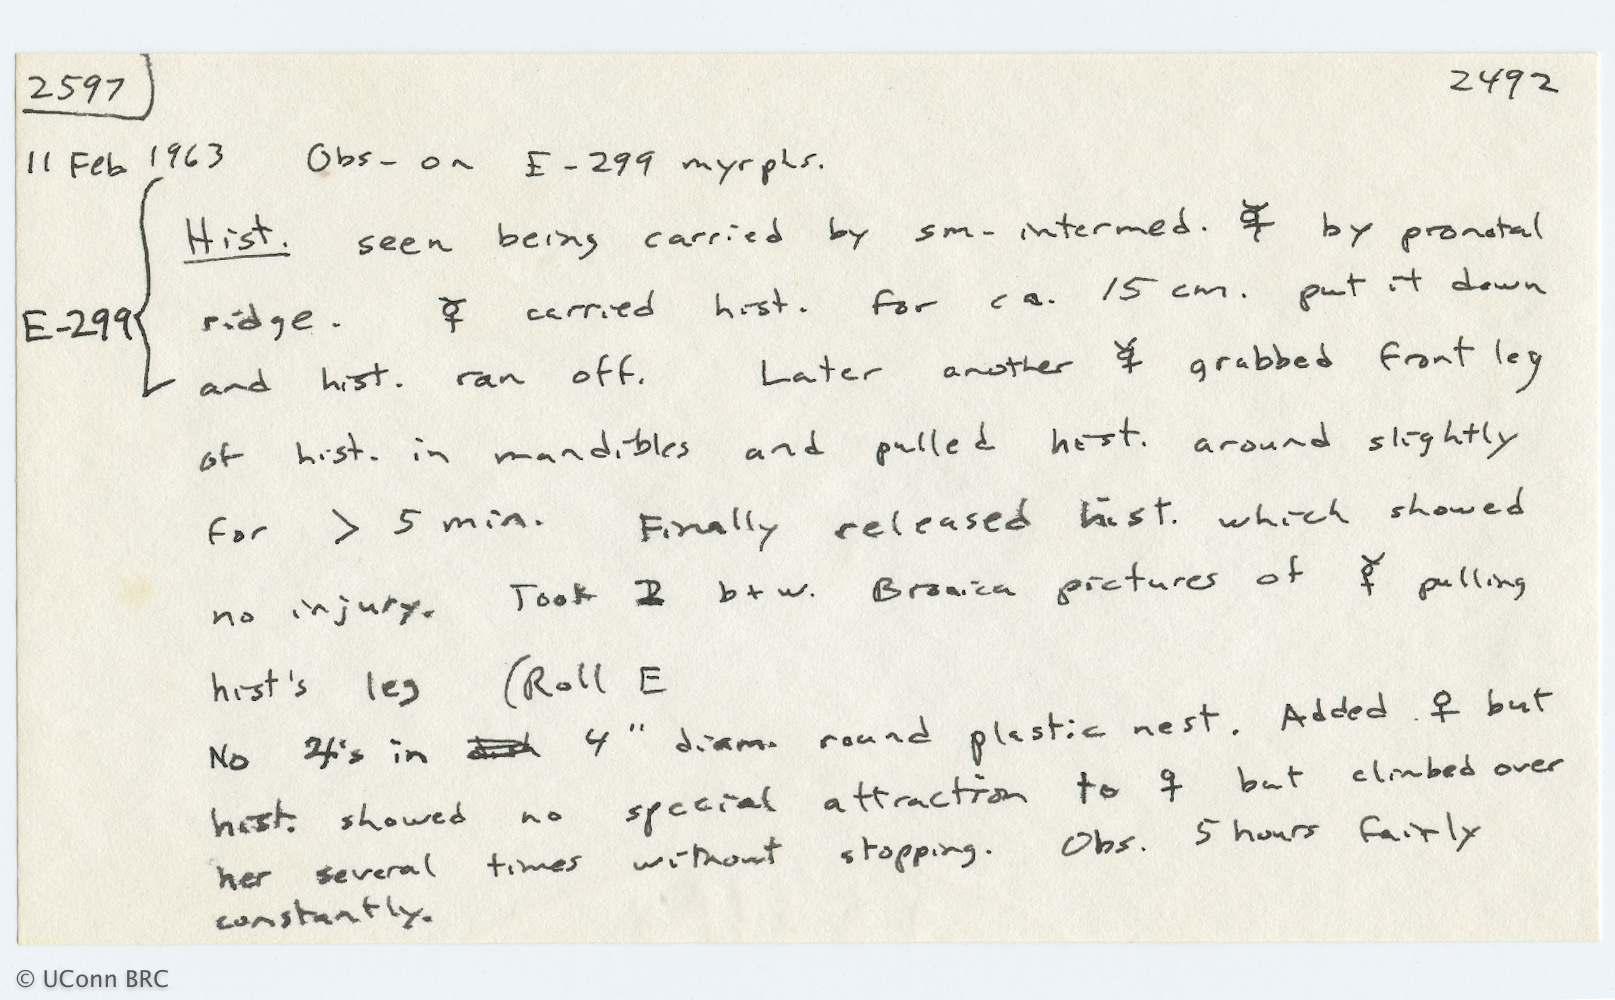 2597
2492
11 Feb 1963 Obs- on E-299 myrphs.
Hist. seen being carried by sm-intermed. ☿ by pronotal
E-299
ridge. ☿ carried hist. for ca. 15 cm. put it down
and hist. ran off. Later another ☿ grabbed front leg
of hist. in mandibles and pulled hist. around slightly
for > 5 min. Finally released hist. which showed
no injury. Took 2 b+w. Bronica pictures of ☿ pulling
hist's leg (Roll E
No ♃'s in 4" diam. round plastic nest. Added ♀ but
hist. showed no special attraction to ♀ but climbed over
her several times without stopping. Obs. 5 hours fairly
constantly.
© UConn BRC